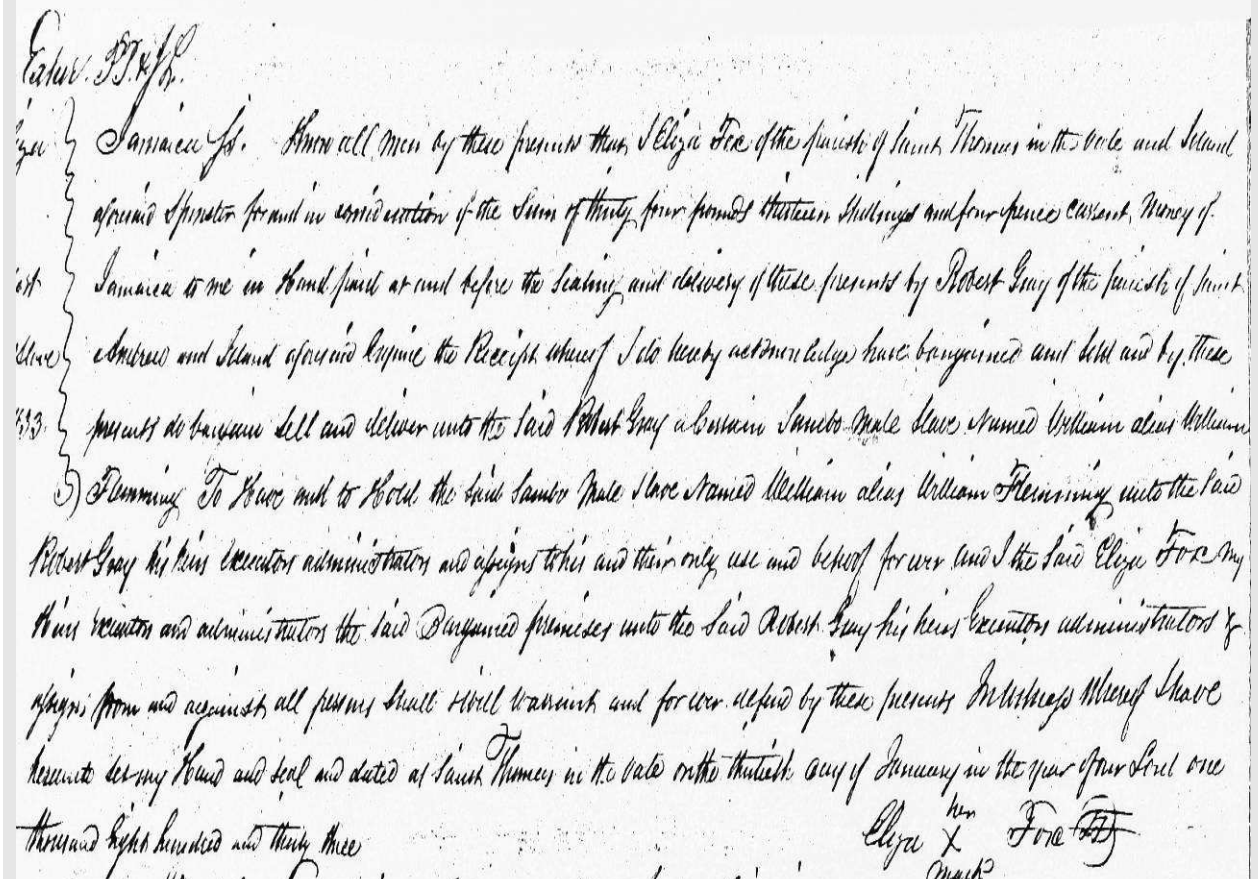 Jamaica Ss. Know all Men by these presents that I Eliza Fox of the parish of Saint Thomas in the Vale and Island
aforesaid Spinster for and in consideration of the Sum of thirty four pounds thirteen Shillings and four pence current Money of
Jamaica to me in Hand paid at and before the Sealing and delivery of these presents by Robert Gray of the parish of Saint
Slave Andrew and Island aforesaid Esquire the Receipt whereof I do hereby acknowledge have bargained and sold and by these
833 presents do bargain Sell and deliver unto the Said Robert Gray a Certain Sambo Male Slave Named William alias William
Flemming To Have and to Hold the said Sambo Male Slave Named William alias William Flemming unto the Said
Robert Gray his heirs Executors administrators and assigns to his and their only use and behoof for ever And I the Said Eliza Fox my
Heirs Executors and administrators the said Bargained premises unto the Said Robert Gray his heirs Executors administrators &
assigns from and against all persons Shall & will warrant and for ever defend by these presents In Witness Whereof I have
hereunto set my Hand and seal and dated at Saint Thomas in the Vale on the thirtieth day of January in the year of our Lord one
thousand Eight hundred and thirty three
her
Eliza X Fox
mark